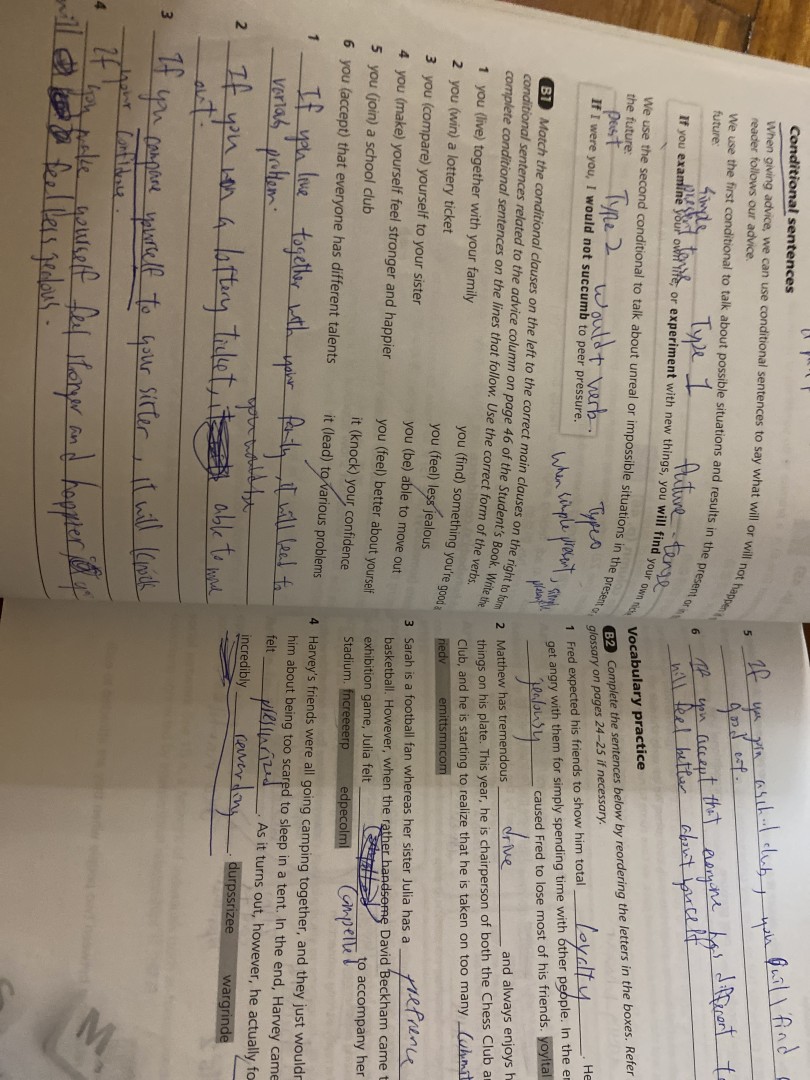 Conditional sentences
When giving advice, we can use conditional sentences to say what will or will not happen
reader follows our advice.
We use the first conditional to talk about possible situations and results in the present or
future:
simple
present tense Type 1 future tense
If you examine your own life, or experiment with new things, you will find your own
We use the second conditional to talk about unreal or impossible situations in the present or
the future:
past Type 2 would + verb.
If I were you, I would not succumb to peer pressure.
Type 0
When simple present, simple
B1 Match the conditional clauses on the left to the correct main clauses on the right to form
conditional sentences related to the advice column on page 46 of the Student's Book. Write the
complete conditional sentences on the lines that follow. Use the correct form of the verbs.
1 you (live) together with your family
2 you (win) a lottery ticket
3 you (compare) yourself to your sister
4 you (make) yourself feel stronger and happier
5 you (join) a school club
6 you (accept) that everyone has different talents
you (find) something you're good a
you (feel) less jealous
you (be) able to move out
you (feel) better about yourself
it (knock) your confidence
it (lead) to various problems
1 If you live together with your family, it will lead to
various problem.
2 If you won a lottery ticket, you would be able to move
out.
3 If you compare yourself to your sister, it will knock
your confidence.
4 If you make yourself feel stronger and happier
will feel less jealous.
5 If you join a school club, you will find
good at.
6 If you accept that everyone has different
will feel better about yourself
Vocabulary practice
B2 Complete the sentences below by reordering the letters in the boxes. Refer
glossary on pages 24–25 if necessary.
1 Fred expected his friends to show him total loyalty. He
get angry with them for simply spending time with other people. In the
jealousy caused Fred to lose most of his friends. yoyltal
2 Matthew has tremendous drive and always enjoys
things on his plate. This year, he is chairperson of both the Chess Club
Club, and he is starting to realize that he is taken on too many commit
riedv emittsmncom
3 Sarah is a football fan whereas her sister Julia has a prefrence
basketball. However, when the rather handsome David Beckham came
exhibition game, Julia felt compelled to accompany her
Stadium. fncreeeerp edpecolml
4 Harvey's friends were all going camping together, and they just
him about being too scared to sleep in a tent. In the end, Harvey came
felt plessurized. As it turns out, however, he actually
incredibly rewarding. durpssrizee wargrinde
M